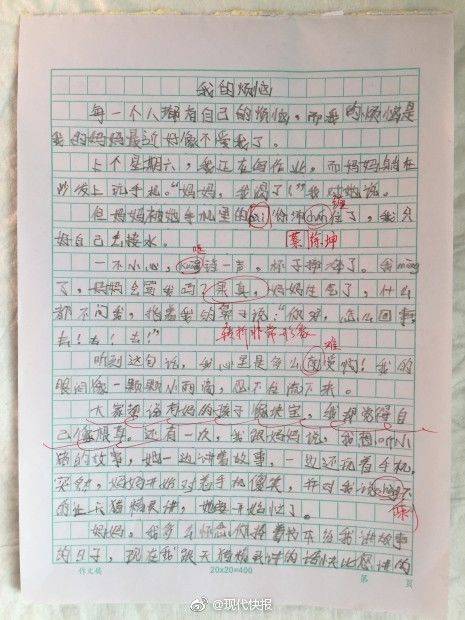 我的烦恼
每一个人都有自己的烦恼，而我的烦恼是
我的妈妈最近好像不爱我了。
上个星期六，我正在写作业，而妈妈躺在
沙发上玩手机。“妈妈，我渴了！”我对她说。
但妈妈被她手机里的 你 住了，我只
缠
好自己去接水。
蔡徐坤
一不小心， 一声，杯子摔碎了。我
了，妈妈会骂我吗？果真，妈妈生气了，什么
都不问我，指着我的鼻子说：“你呀，怎么回事，
去！去！去！”
转折非常形象
听到这句话，我心里是多么 受啊！我的
难
眼泪像一颗颗小雨滴，忍不住流下来。
大家都说有妈的孩子像块宝，我却觉得自
己像根草。还有一次，我跟妈妈说，我想听小
猪的故事，她一边讲着故事，一边还看着手机，
突然，妈妈开始对着手机傻笑，并对我说
陈
天猫精灵讲，她
妈妈，我多么怀念你捧着书本给我讲故事
的日子，现在我跟天猫精灵讲的话快比您讲的
作文稿
20x20=400
第 页
@现代快报